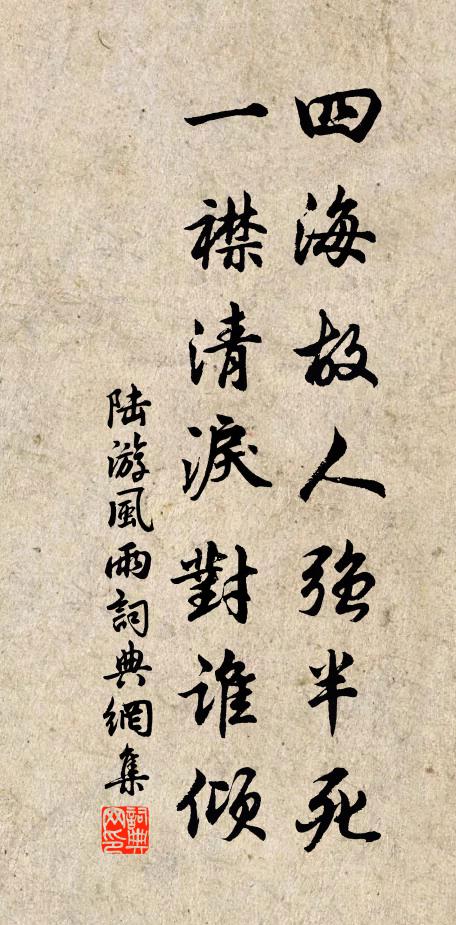 四海故人强半死
一襟清淚對誰傾
陆游風雨詞典網集
詞典網印